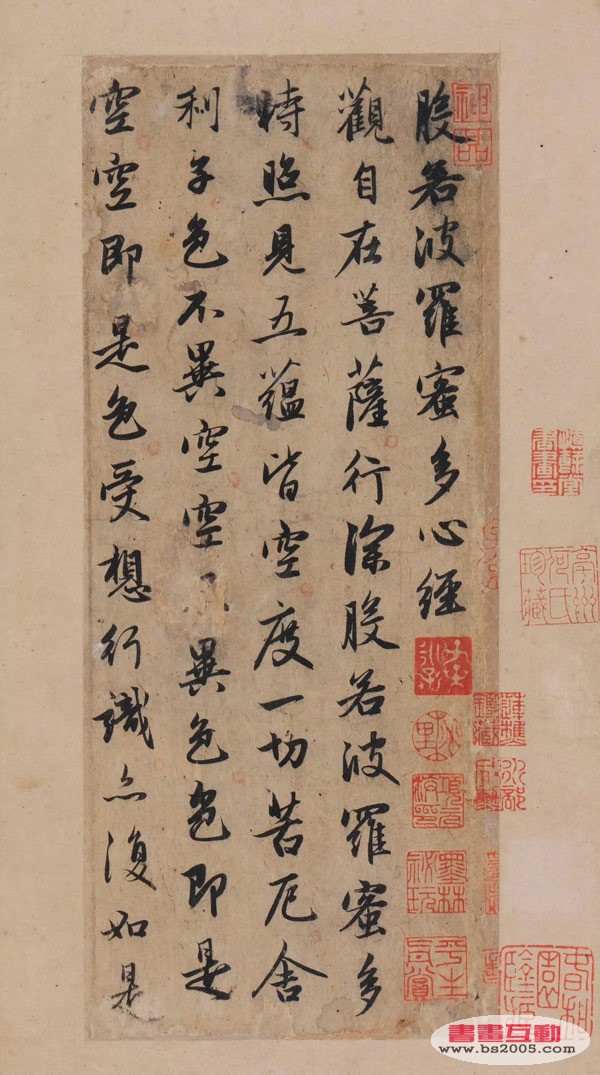 般若波羅蜜多心經
觀自在菩薩行深般若波羅蜜多
時照見五蘊皆空度一切苦厄舍
利子色不異空空不異色色即是
空空即是色受想行識亦復如是
神品
墨林秘玩
平生真賞
書畫互動
www.bs2005.com